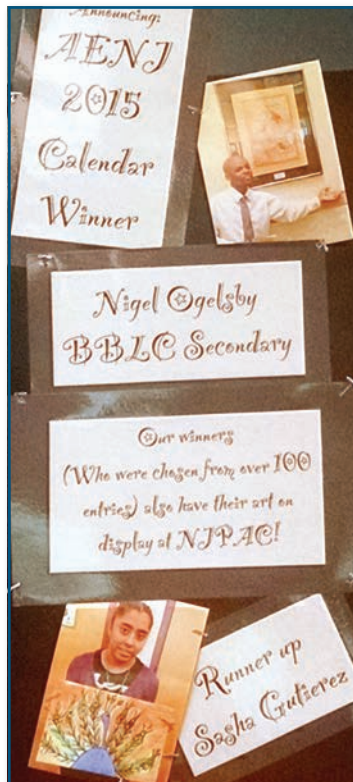 Announcing:
AENJ
2015
Calendar
Winner
Nigel Ogelsby
BBLC Secondary
Our winners
(Who were chosen from over 100
entries) also have their art on
display at NJPAC!
Runner up
Sasha Gutierez